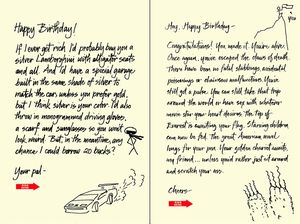 Happy Birthday!
If I ever get rich I'd probably buy you a
silver Lamborghini with alligator seats
and all. And I'd have a special garage
built in the same shade of silver to
match the car, unless you prefer gold,
but I think silver is your color. I'd also
throw in monogrammed driving gloves,
a scarf and sunglasses so you won't
look weird. But, in the meantime, any
chance I could borrow 20 bucks?
Your pal-
Hey, Happy Birthday-
Congratulations! You made it. You're alive.
Once again, you've escaped the jaws of death.
There have been no fatal stabbings, accidental
poisonings or chainsaw malfunctions. You've
still got a pulse. You can still take that trip
around the world or have sex with whatever
movie star your heart desires. The Top of
Everest is awaiting your flag. Starving children
can now be fed. The great American novel
longs for your pen. Your golden chariot awaits,
my friend... unless you'd rather just sit around
and scratch your ass.
Cheers-